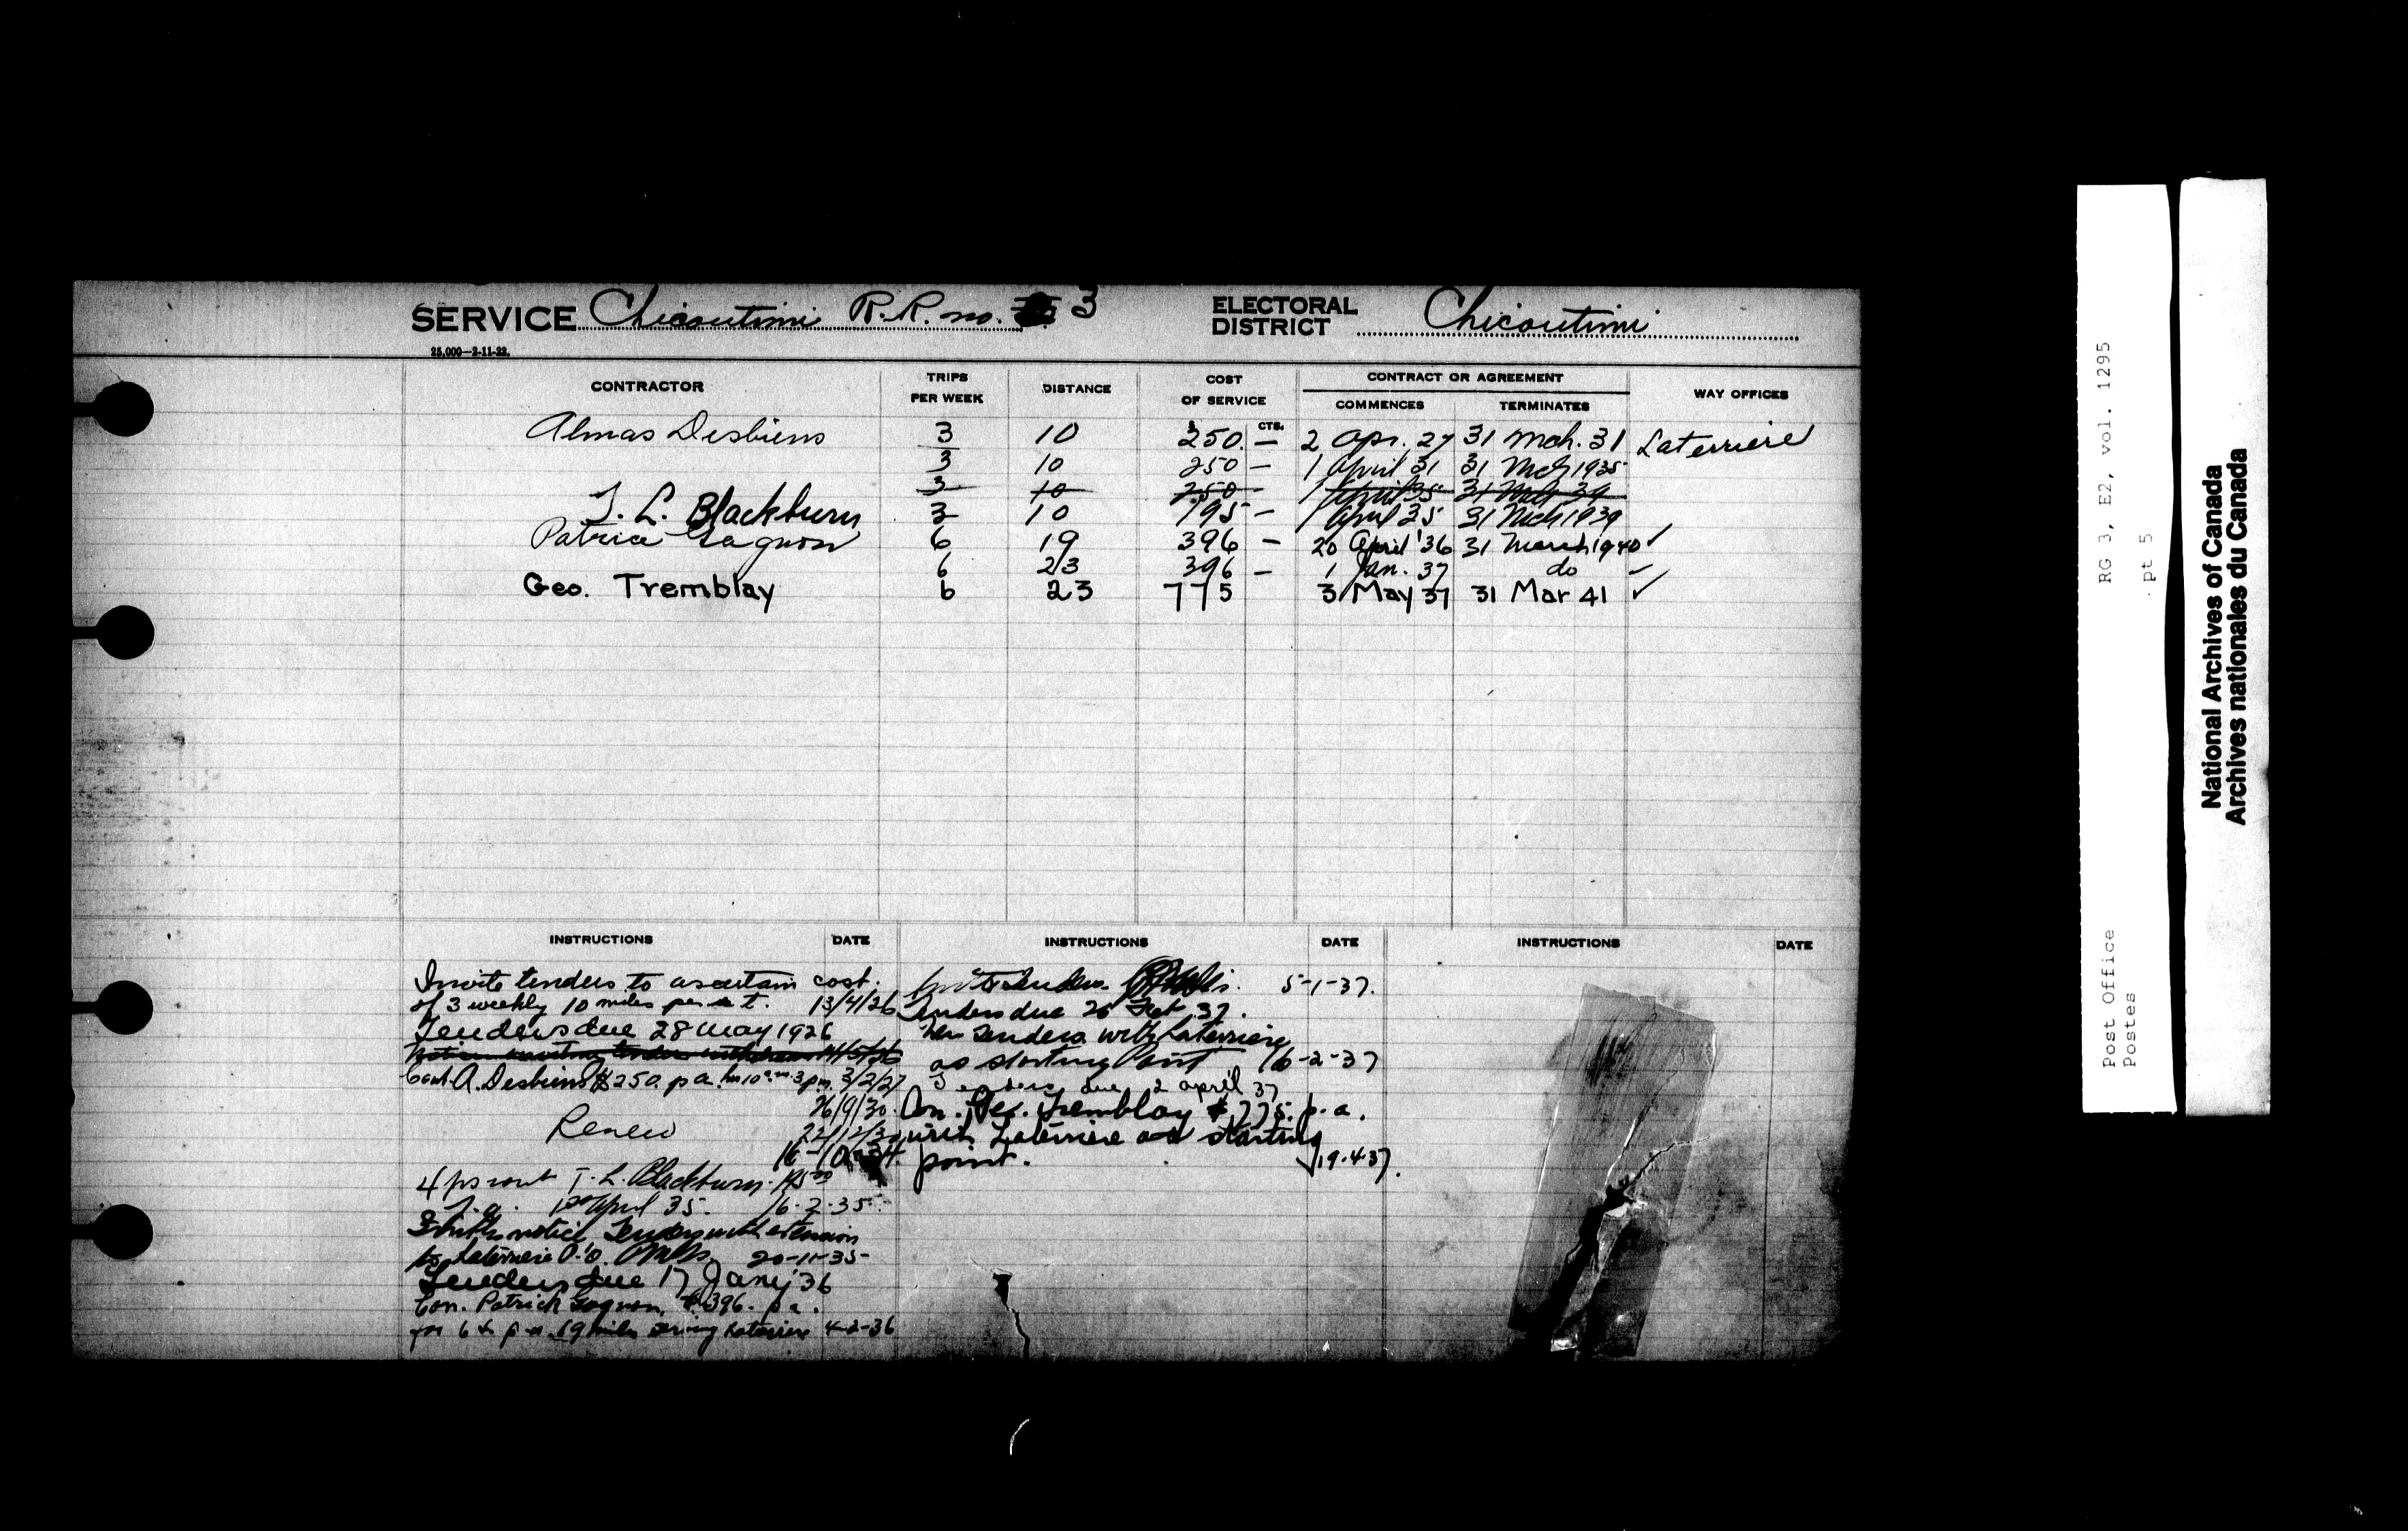 SERVICE Chicoutimi R.R. no. 3 ELECTORAL DISTRICT Chicoutimi
25,000—2-11-22.
CONTRACTOR TRIPS PER WEEK DISTANCE COST OF SERVICE CONTRACT OR AGREEMENT COMMENCES TERMINATES WAY OFFICES
$ CTS.
Almas Desbiens 3 10 250. — 2 Apr. 27 31 Mch. 31 Laterriere
3 10 250 — 1 April 31 31 Mch 1935
3 10 250 - 1 April 35 31 Mch 39
T. L. Blackburn 3 10 195 — 1 April 35 31 Mch 1939
Patrice Gagnon 6 19 396 — 20 April '36 31 March 1940 ✓
6 23 396 — 1 Jan. 37 do
Geo. Tremblay 6 23 775 3 May 37 31 Mar 41 ✓
INSTRUCTIONS DATE
Invite tenders to ascertain cost.
of 3 weekly 10 miles per t. 13/4/26
Tenders due 28 May 1926
Cont. A. Desbiens $250. p a. 3/2/27
26/9/30.
Renew 22/12/30
16-10-34.
T. L. Blackburn
1st April 35. 16-2-35
notice Tenders with extension
to Laterriere P.O. 20-11-35
Tenders due 17 Jany '36
Con. Patrick Gagnon, $396. p a.
for 6 t p w 19 miles serving Laterriere 4-2-36
INSTRUCTIONS DATE
5-1-37.
Tenders due 26 Feb 37.
New Tenders with Laterriere
as starting point 16-2-37
Tenders due 2 april 37
Con. Geo. Tremblay $775. p.a.
with Laterriere as starting
point. 19.4.37.
INSTRUCTIONS DATE
Post Office RG 3, E2, vol. 1295
Postes pt 5
National Archives of Canada
Archives nationales du Canada